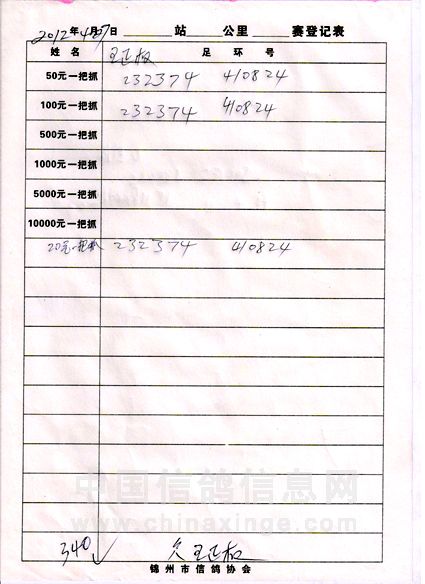 2012年4月27日 站 公里 赛登记表
姓名 王正权 足环号
50元一把抓 232374 410824
100元一把抓 232374 410824
500元一把抓
1000元一把抓
5000元一把抓
10000元一把抓
20元一把抓 232374 410824
中国信鸽信息网
www.chinaxinge.com
340 欠 王正权
锦州市信鸽协会